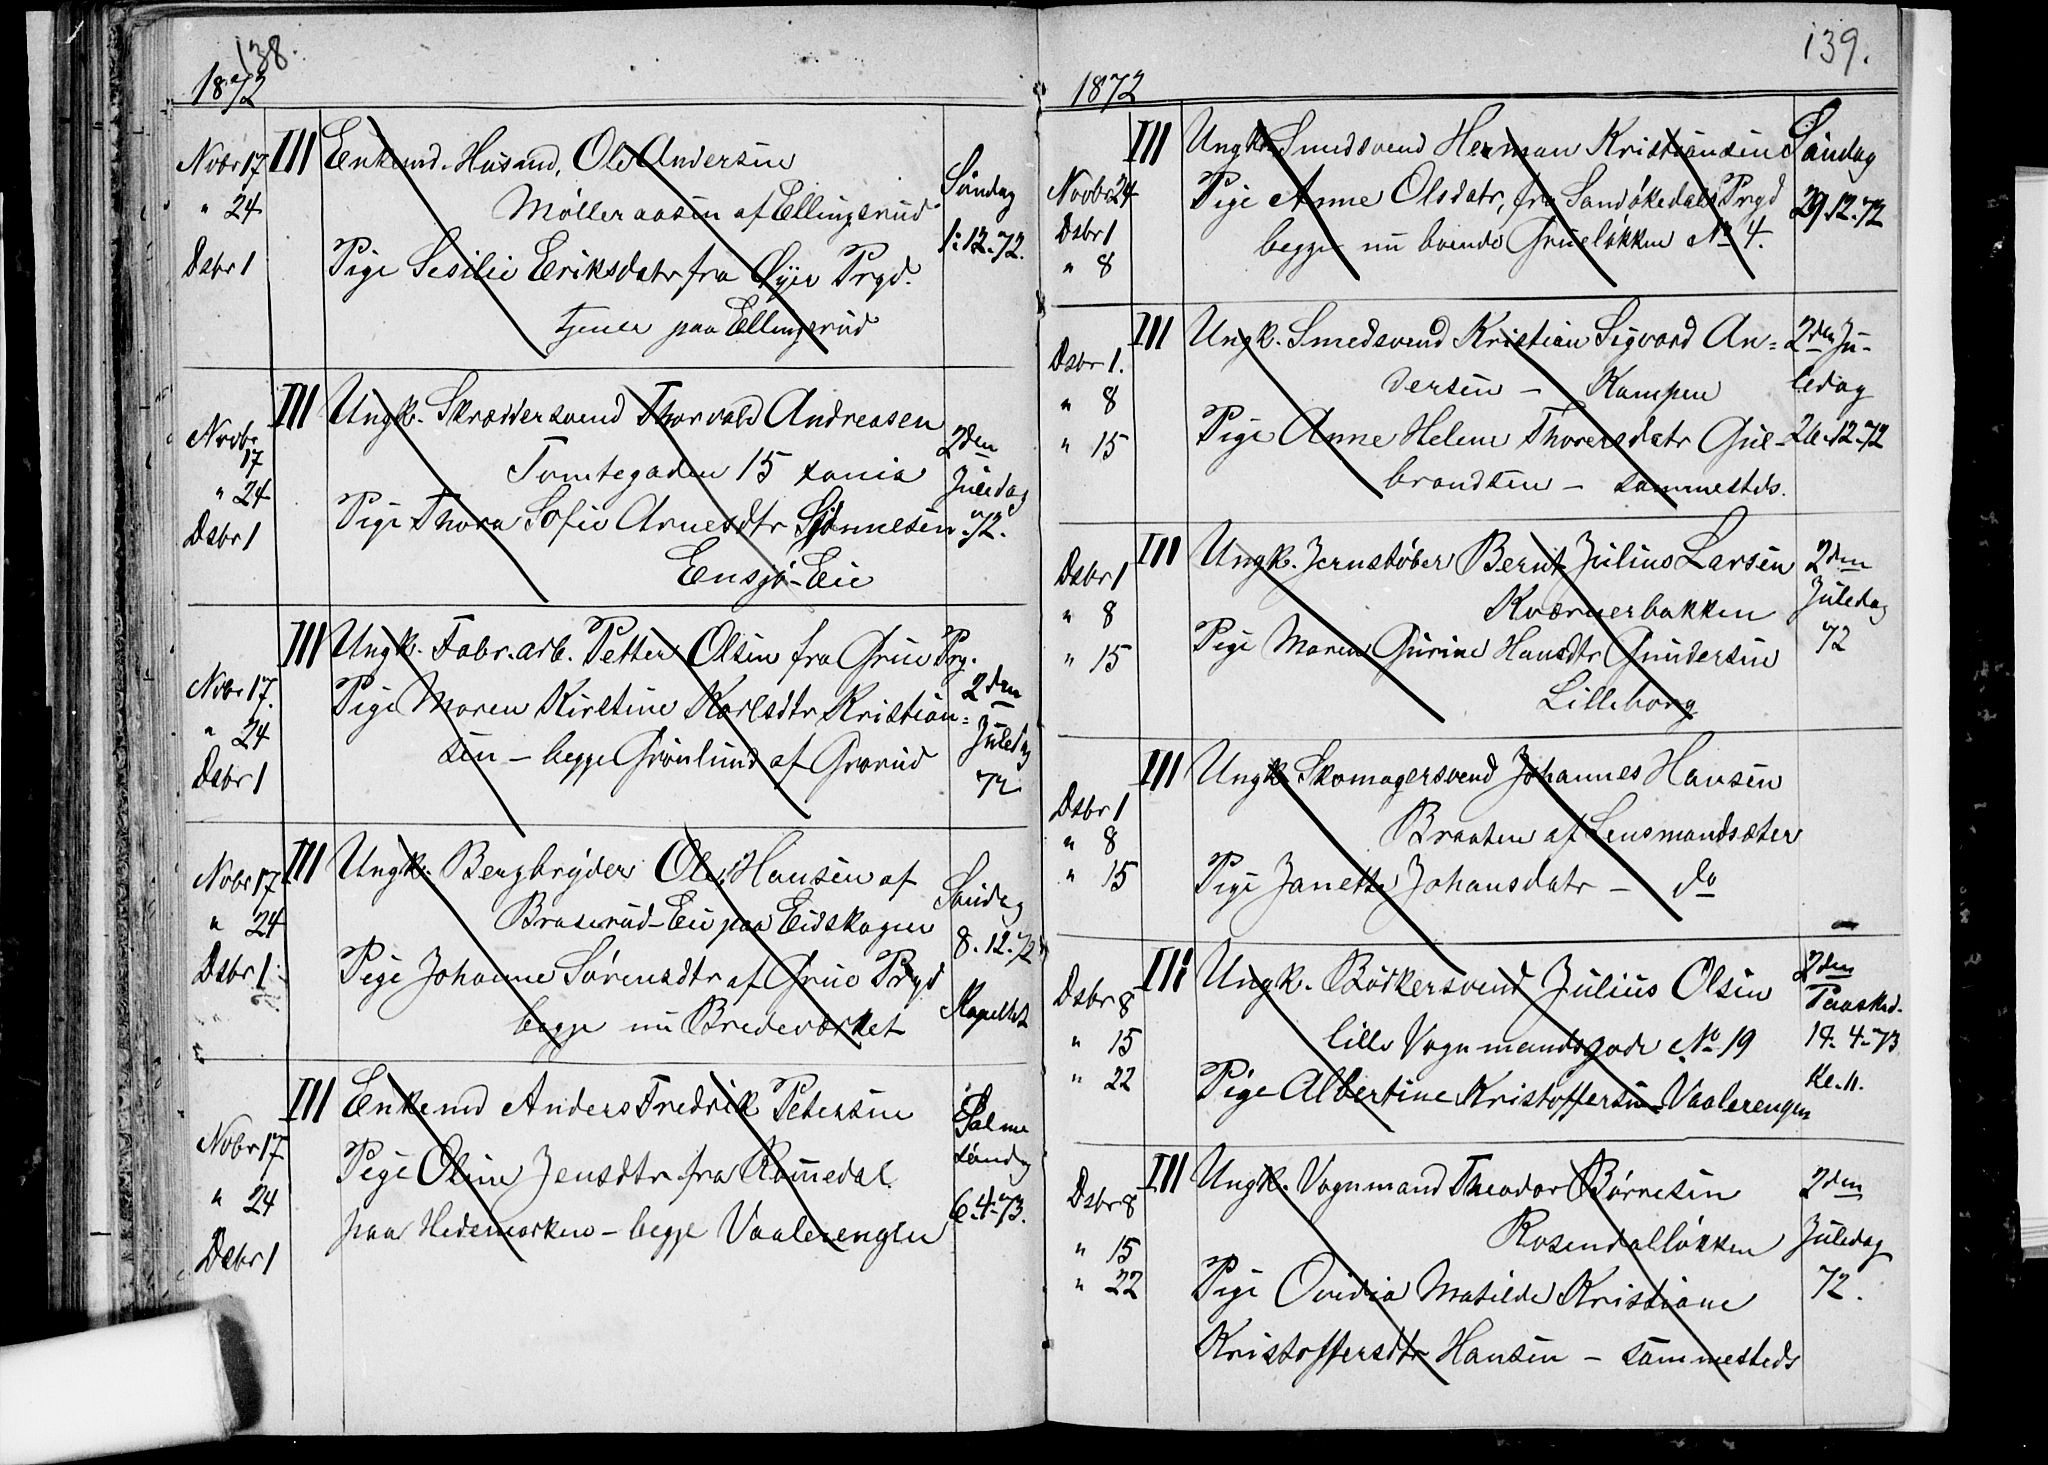 138.
1872
Novbr 17 III Enkemd. Husmd. Ole Andersen
" 24 Mølleraasen af Ellingsrud Søndag
Dsbr 1 Pige Sesilie Eriksdatr fra Øyer Prgd. 1:12-72.
tjener paa Ellingsrud
III Ungk. Skræddersvend Thorvald Andreasen
Novbr 17 Tomtegaden 15 xania 2den
" 24 Pige Thora Sofie Arnesdtr Juledag
Dsbr 1 Ensjø-Eie 72.
III Ungk. Fabr.arb. Petter Olsen fra Grue Prg.
Novbr 17. Pige Maren Kirstine Karlsdtr Kristian= 2den
" 24 sen – begge Grønlund af Grorud Juledag
Dsbr 1 72
Novbr 17 III Ungk. Bergbryder Ole Hansen af
" 24 Braserud-Eie paa Eidskogen Søndag
Dsbr 1 Pige Johanne Sørensdtr af Grue Prgd 8.12.72
begge nu Bredeværket Kapellet
III Enkemd Anders Fredrik Petersen
Novbr 17 Pige Oline Jensdtr fra Romedal Palme
" 24 paa Hedemarken – begge Vaalerengen søndag
Dsbr 1 6-4-73.
139.
1872
III Ungk. Smedsvend Herman Kristiansen Søndag
Novbr 24 Pige Anne Olsdatr, fra Sandøkedals Prgd 29.12-72
Dsbr 1 begge nu boende Grueløkken No 4.
" 8
III Ungk. Smedsvend Kristian Sigvard An= 2den Ju-
Dsbr 1. dersen – Kampen ledag
" 8 Pige Anne Helene Thoresdatr Gul- 26-12-72
" 15 brandsen – sammesteds.
III Ungk. Jernstøber Bernt Julius Larsen 2den
Dsbr 1 Kværnerbakken Juledag
" 8 Pige Maren Gurine Hansdtr Gundersen 72
" 15 Lilleborg
III Ungk Skomagersvend Johannes Hansen
Dsbr 1 Braaten af Lensmandsæter
" 8 Pige Janette Johansdatr – do
" 15
III Ungk. Bødkersvend Julius Olsen 2den
Dsbr 8 lille Vognmandsgade No 19 Paaskd.
" 15 Pige Albertine Kristoffersen Vaalerengen 14-4-73
" 22 Kl. 11.
III Ungk. Vognmand Theodor Børresen 2den
Dsbr 8 Rosendalløkken Juledag
" 15 Pige Ovidia Matilde Kristiane 72.
" 22 Kristoffersdtr Hansen – sammesteds